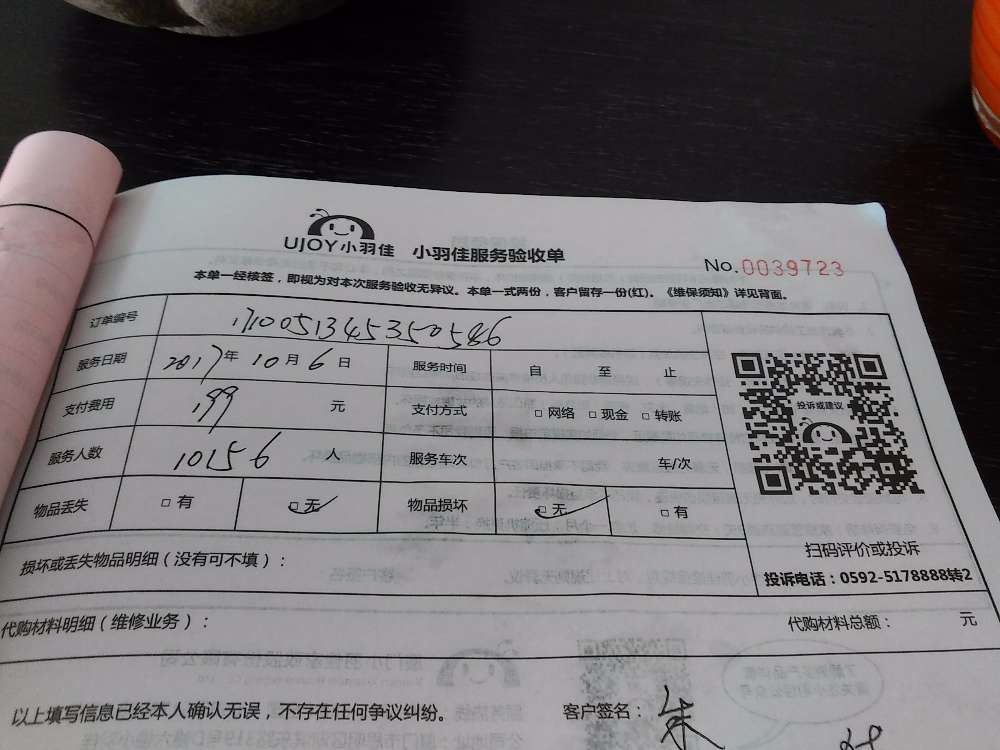 UJOY小羽佳 小羽佳服务验收单
No.0039723
本单一经核签，即视为对本次服务验收无异议。本单一式两份，客户留存一份(红)。《维保须知》详见背面。
订单编号 17100513453505846
服务日期 2017年10月6日 服务时间 自 至 止
支付费用 199 元 支付方式 □网络 □现金 □转账
服务人数 10156 人 服务车次 车/次
物品丢失 □有 □无 物品损坏 □无 □有
投诉或建议
扫码评价或投诉
投诉电话：0592-5178888转2
损坏或丢失物品明细（没有可不填）：
代购材料明细（维修业务）： 代购材料总额： 元
以上填写信息已经本人确认无误，不存在任何争议纠纷。 客户签名：朱